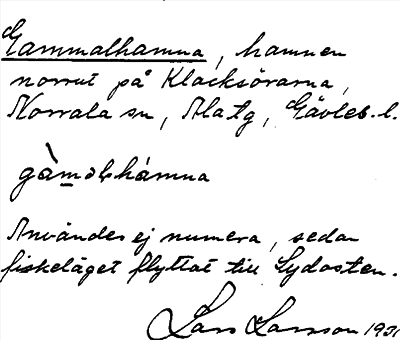 Gammalhamna, hamnen
norrut på Klacksörarna,
Norrala sn, Ala tg, Gävleb. l.
gàm̲əlhámna
Användes ej numera, sedan
fiskeläget flyttat till Sydosten.
Lars Larsson 1931